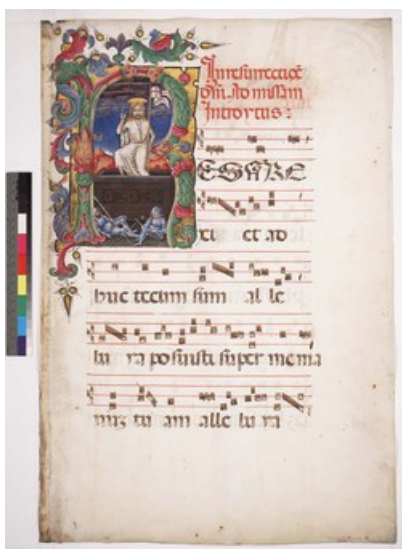 In resurrectiõe
dñi. Ad missam
Introytus :
RESVRE
xi et ad
huc tecum sum al le
lu ya posuisti super me ma
nuz tu am alle lu ya